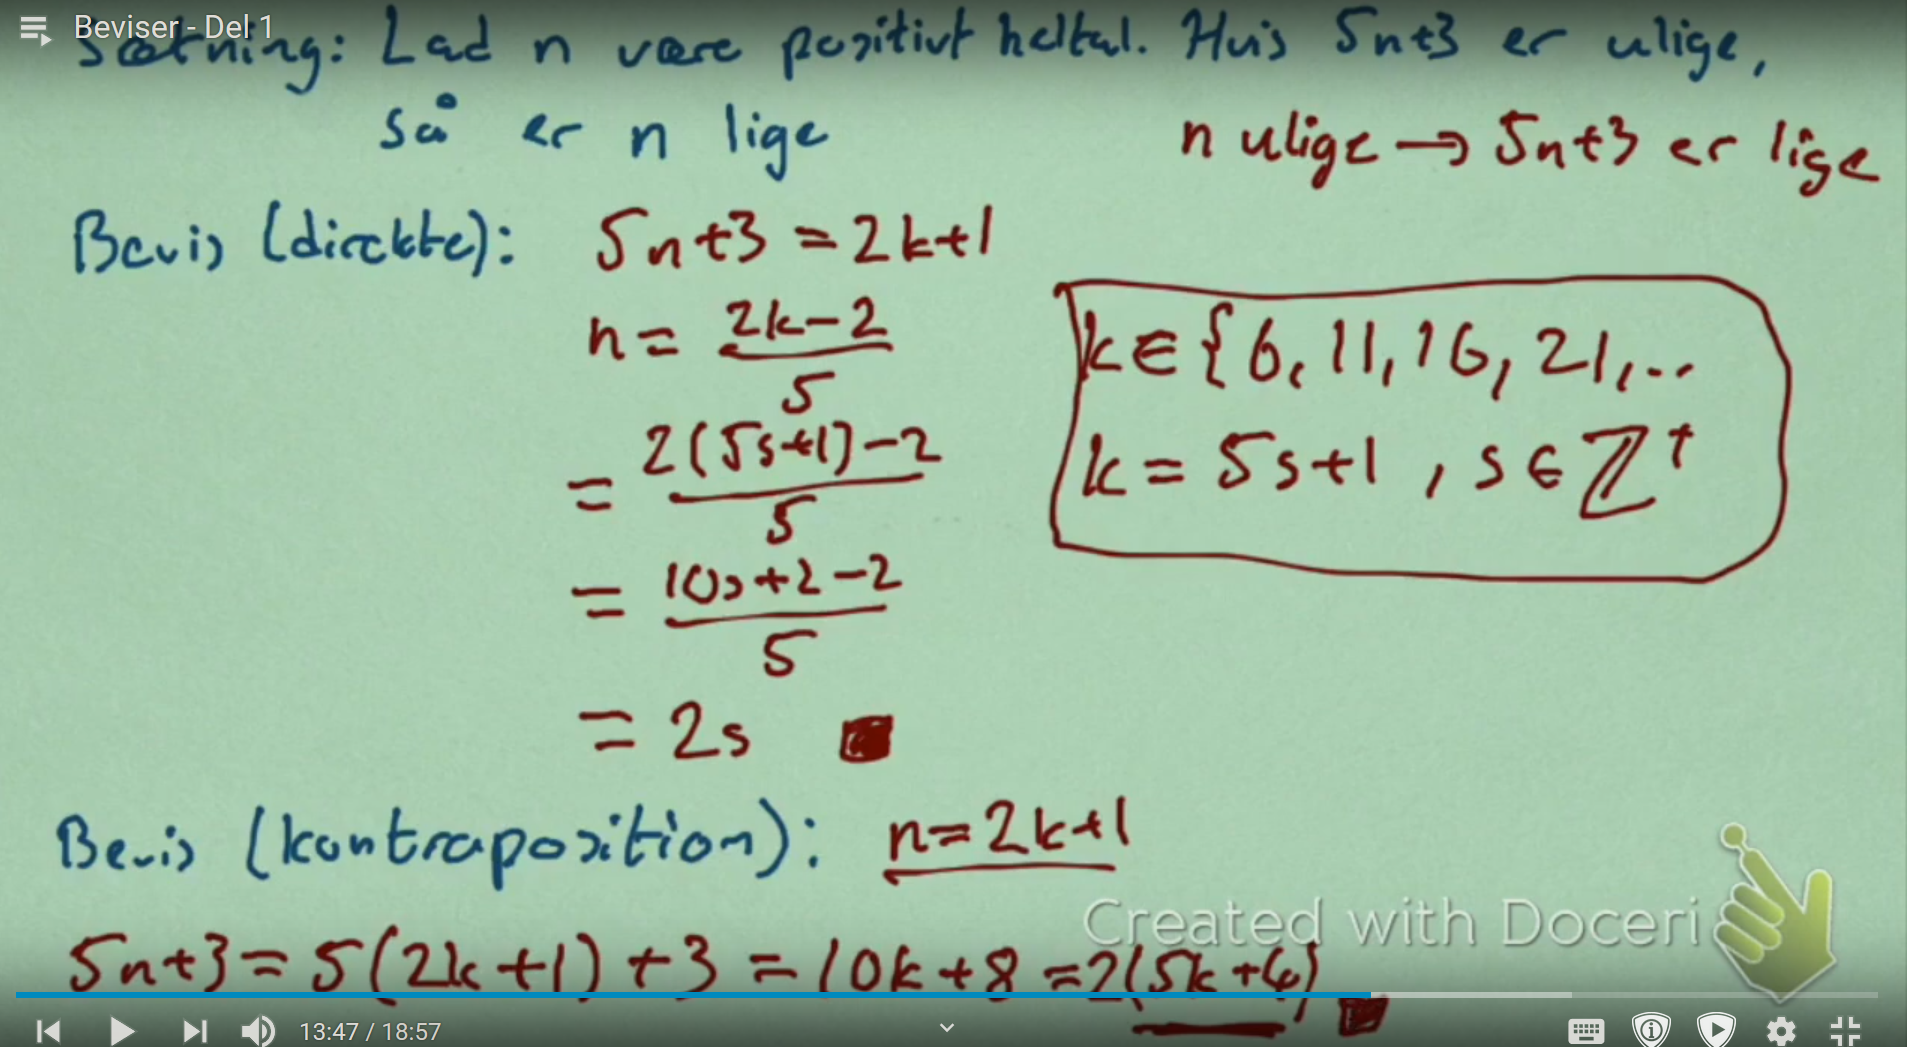 Beviser - Del 1
Sætning: Lad n være positivt heltal. Hvis 5n+3 er ulige,
så er n lige
n ulige → 5n+3 er lige
Bevis (direkte): 5n+3 = 2k+1
n = (2k-2)/5
= (2(5s+1)-2)/5
= (10s+2-2)/5
= 2s ■
k ∈ {6, 11, 16, 21, ..
k = 5s+1 , s ∈ ℤ⁺
Bevis (kontraposition): n=2k+1
5n+3 = 5(2k+1)+3 = 10k+8 = 2(5k+4) ■
Created with Doceri
13:47 / 18:57